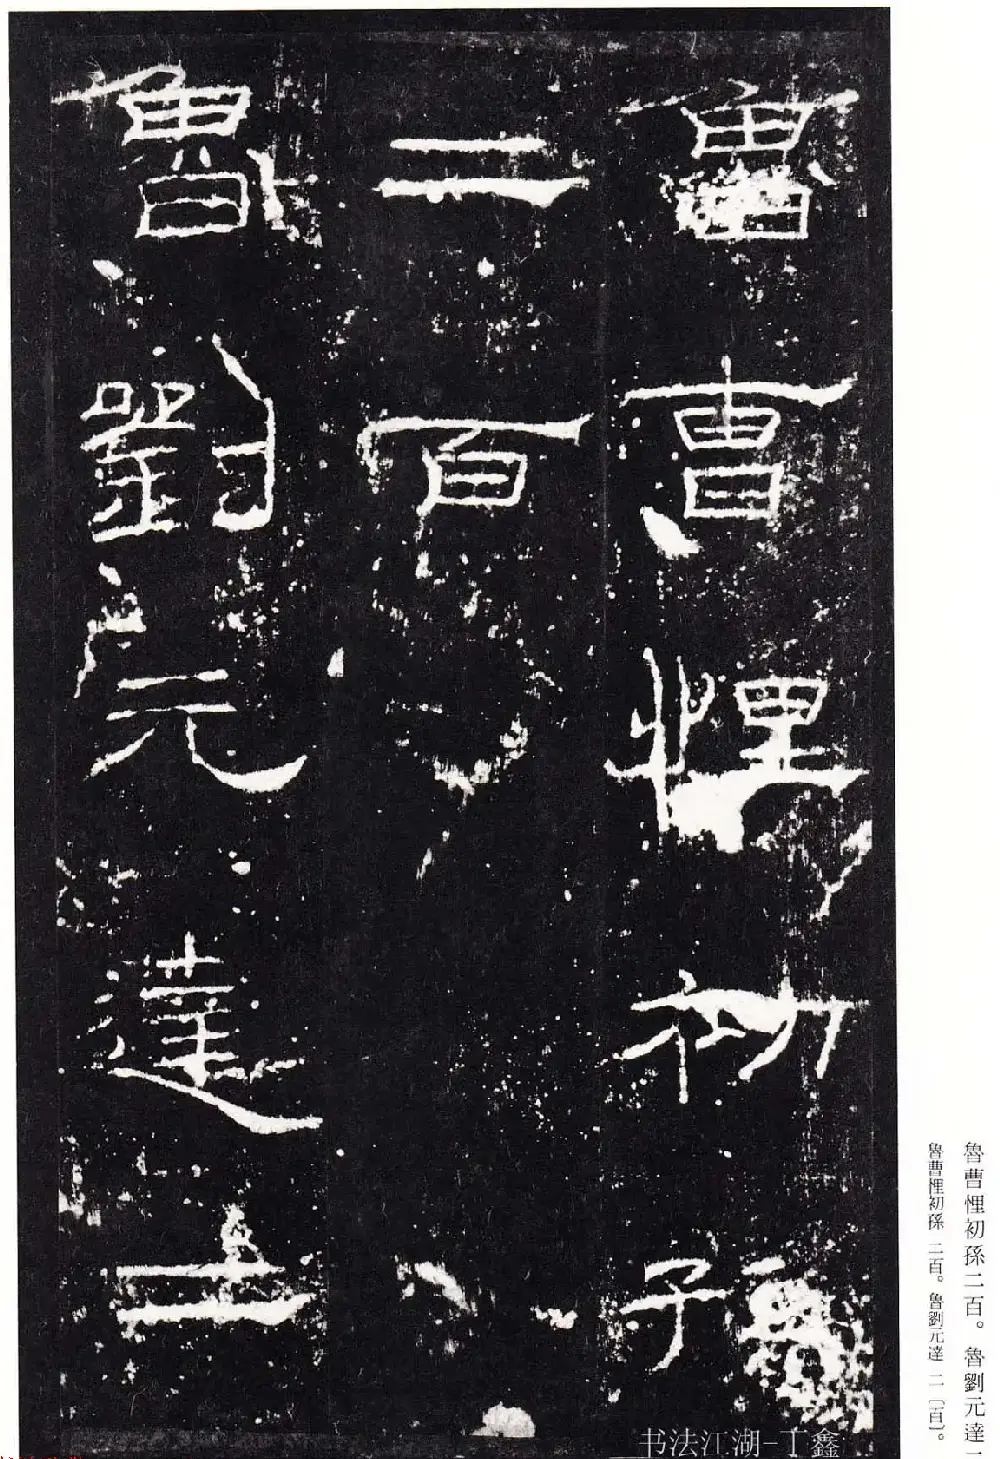 魯曹悝初孫
二百
魯劉元達二
魯曹悝初孫二百。魯劉元達二
魯曹悝初孫 二百。魯劉元達 二〔百〕。
书法江湖-丁鑫